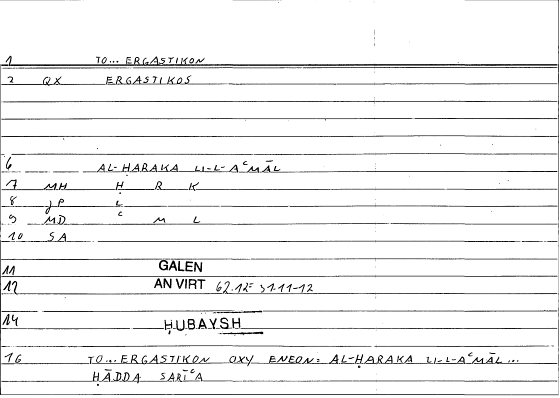 1 TO... ERGASTIKON
2 QX ERGASTIKOS
6 AL-ḤARAKA LI-L-AᶜMĀL
7 MH Ḥ R K
8 JP L
9 MD ᶜ M L
10 SA
11 GALEN
12 AN VIRT 62.12 = 31.11-12
14 ḤUBAYSH
16 TO...ERGASTIKON OXY ENEON: AL-ḤARAKA LI-L-AᶜMĀL...
ḤĀDDA SARĪᶜA